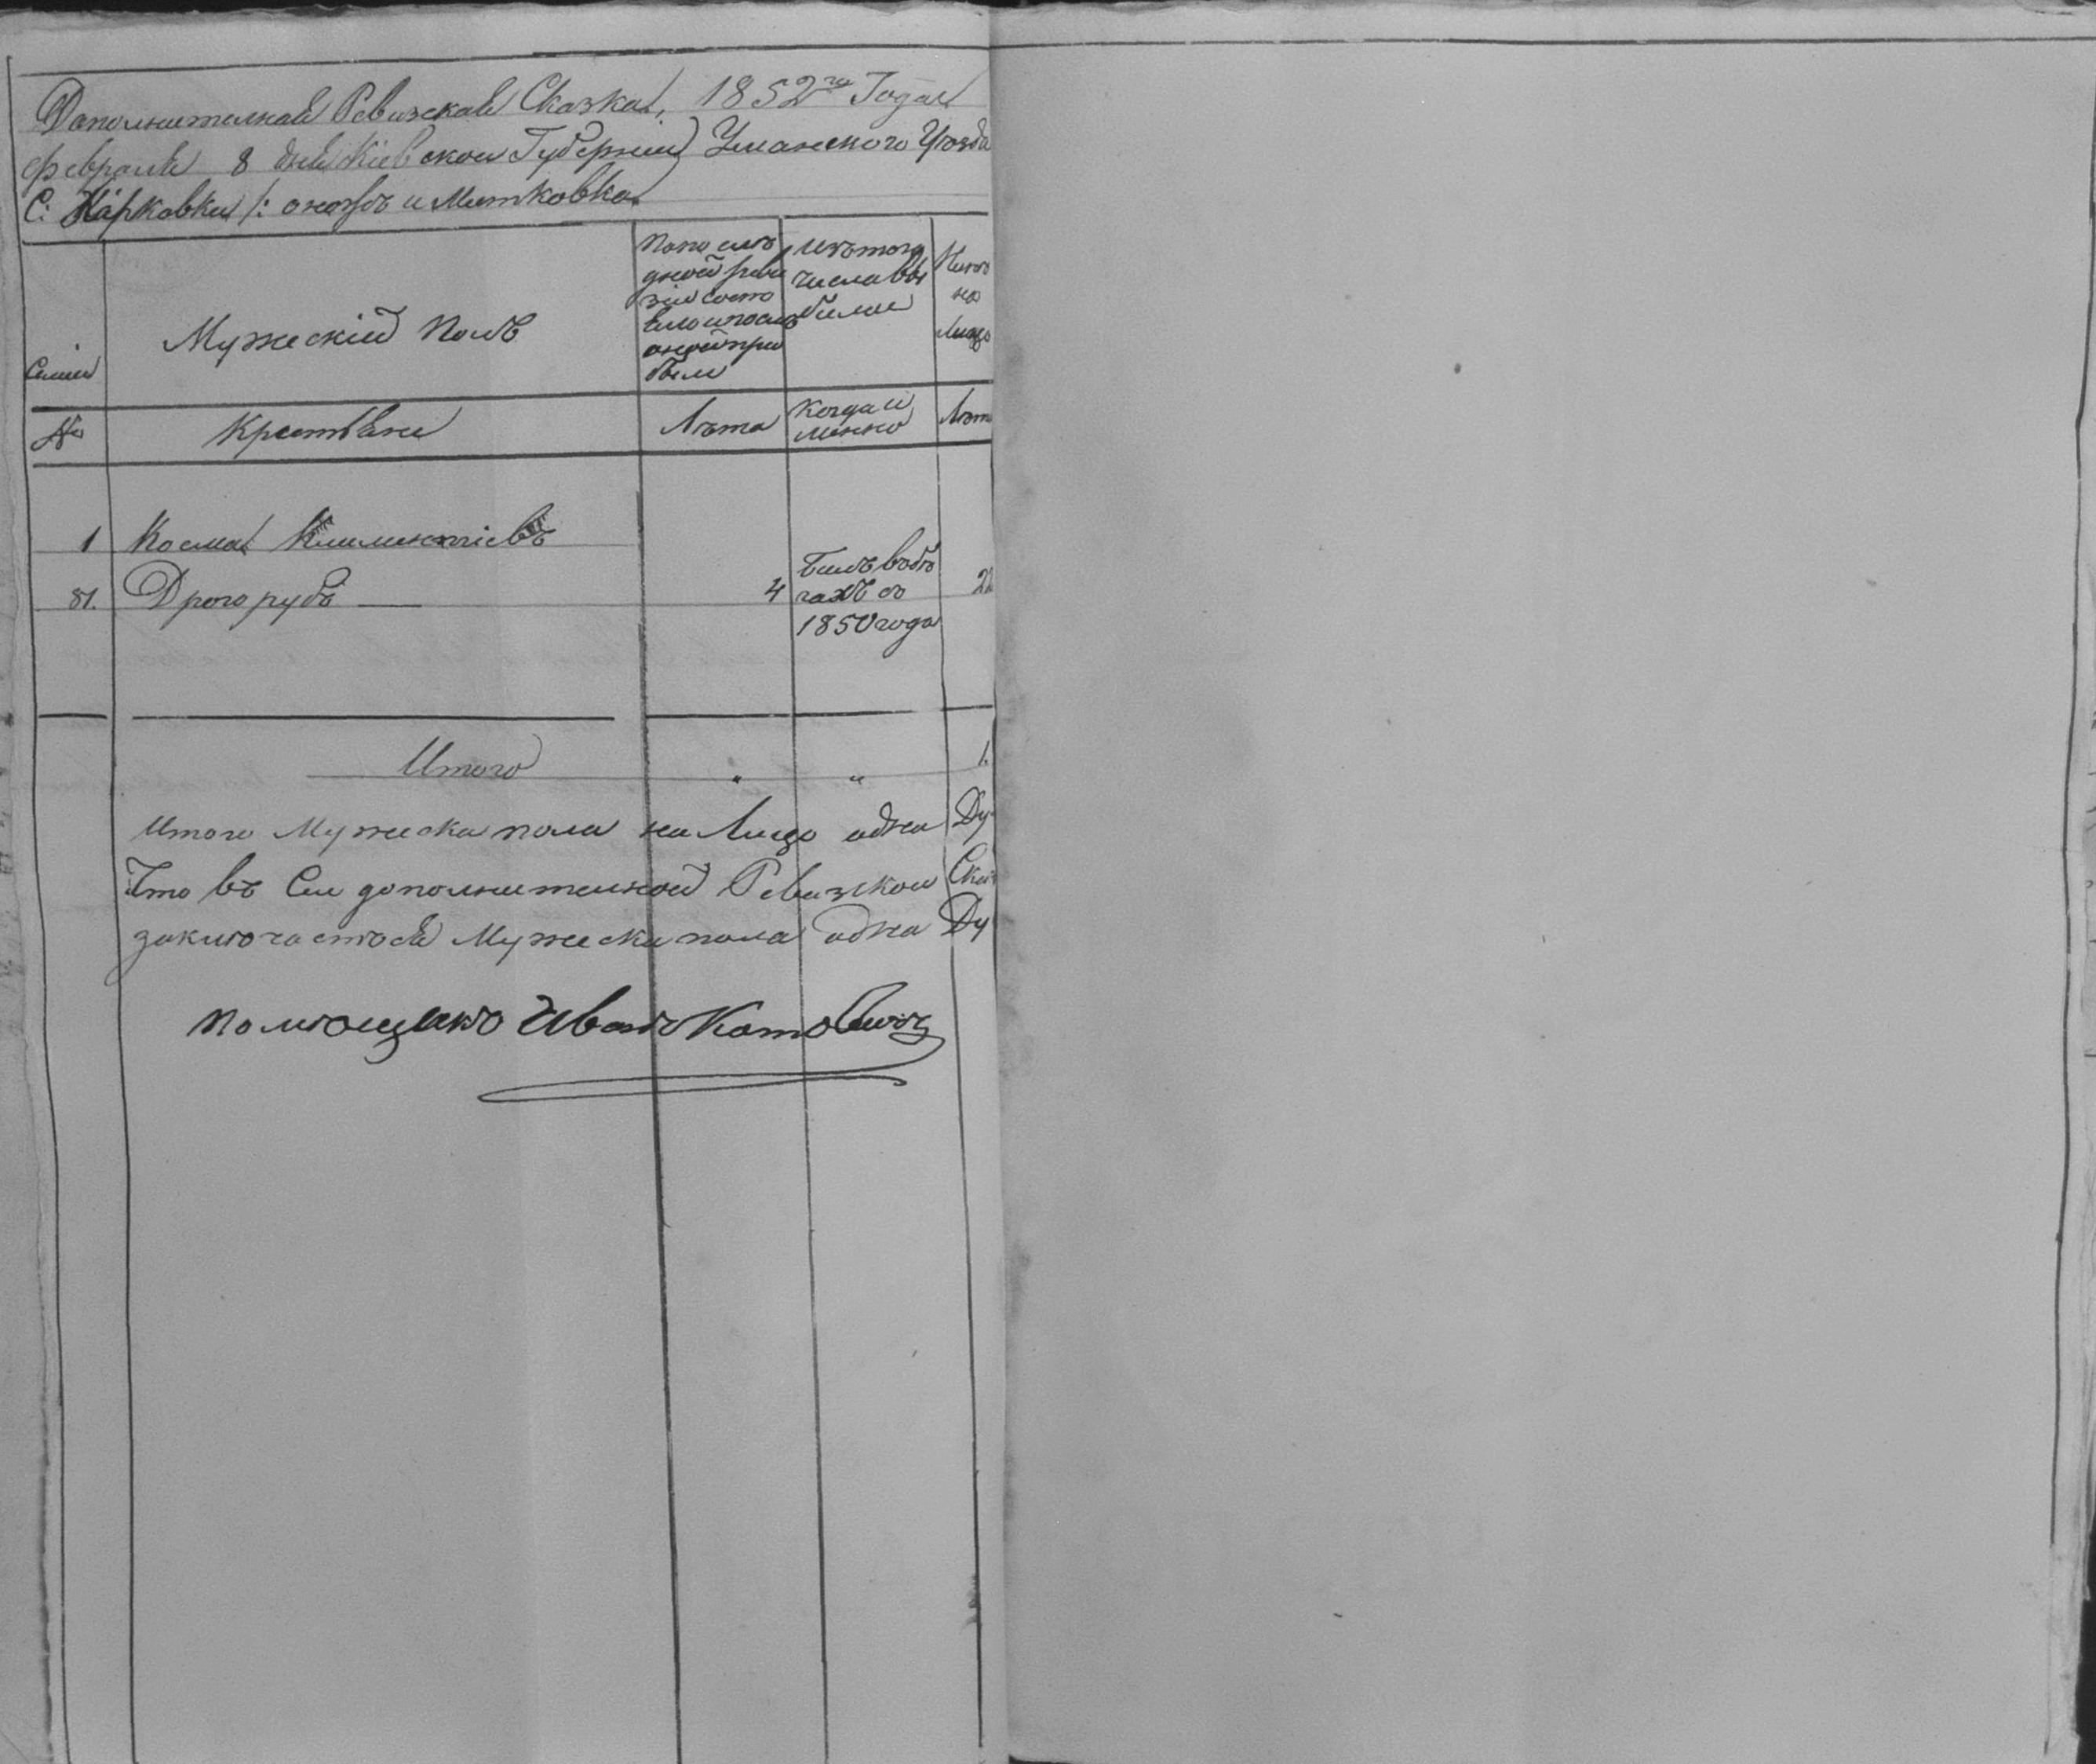 Дополнителная Ревизская Сказка, 1852го Года
февраля 8 дня Кіевской Губерніи Уманского Уѣзда
С: Харковки /: онажъ и Митковка
Семьи
Мужескій полъ
По послѣ
дней реви
зіи состо
яло и послѣ
оной при
было
Изъ того
числа вы
было
Нынѣ
на
лицо
№
Крестьяне
Лѣта
Когда и
менно
Лѣта
1 Косма Климентіевъ
81. Дрогорубъ 4
Билъ въбѣ
гахъ съ
1850 года
22
Итого " " 1.
Итого Мужеска пола на Лицо адна Ду
Что въ Сей дополнителной Ревизской Ска
заключается Мужеска пола адна Ду
помѣщикъ Иванъ